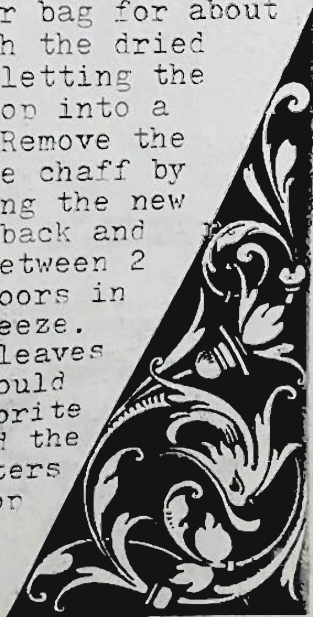 r bag for about
h the dried
letting the
op into a
Remove the
e chaff by
ng the new
back and
etween 2
oors in
eeze.
leaves
ould
orite
d the
ters
or